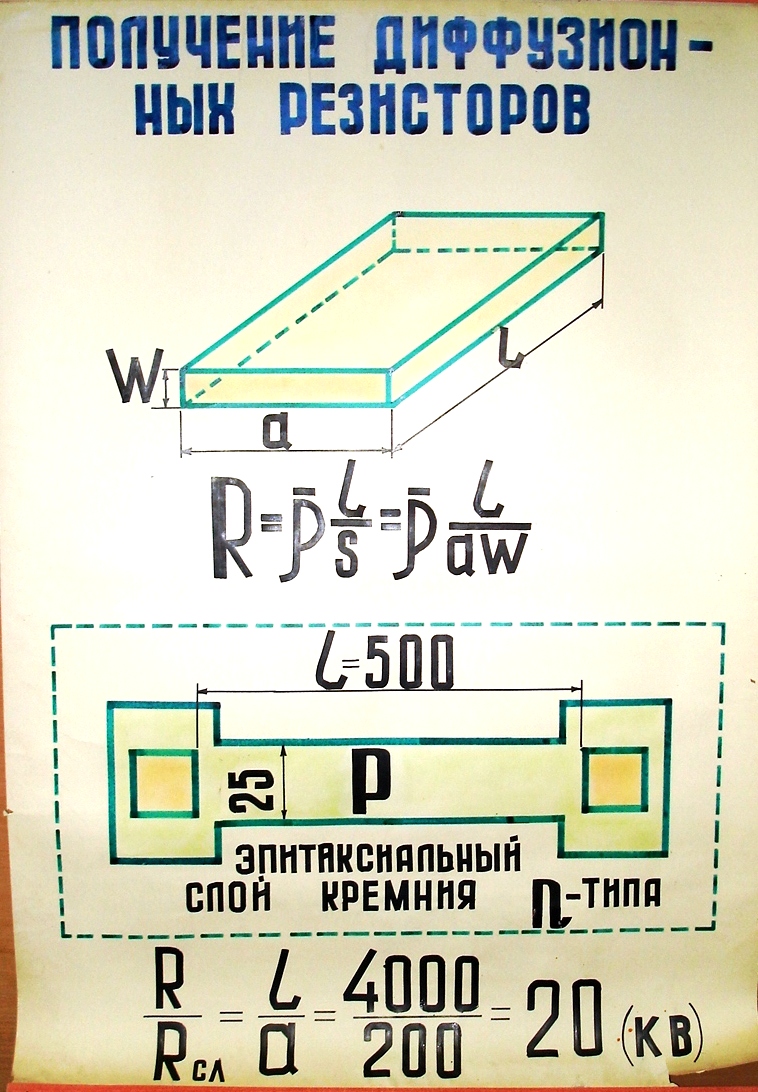 ПОЛУЧЕНИЕ ДИФФУЗИОН-
НЫХ РЕЗИСТОРОВ
W
l
a
R=ρ̄ l/s=ρ̄ l/aw
l=500
25
P
ЭПИТАКСИАЛЬНЫЙ
СЛОЙ КРЕМНИЯ n-ТИПА
R/Rсл = l/a = 4000/200 = 20 (КВ)